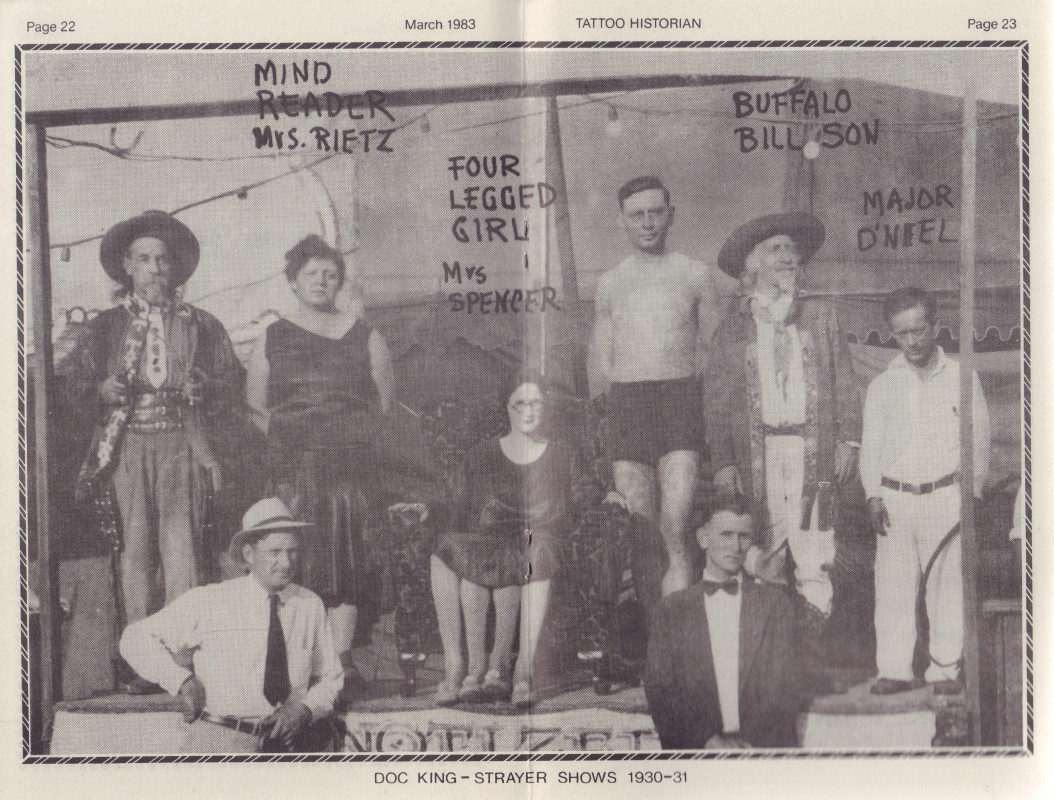 Page 22
March 1983
TATTOO HISTORIAN
Page 23
MIND
READER
MRS. RIETZ
FOUR
LEGGED
GIRL
Mrs
SPENCER
BUFFALO
BILL SON
MAJOR
O'NIEL
DOC KING - STRAYER SHOWS 1930-31